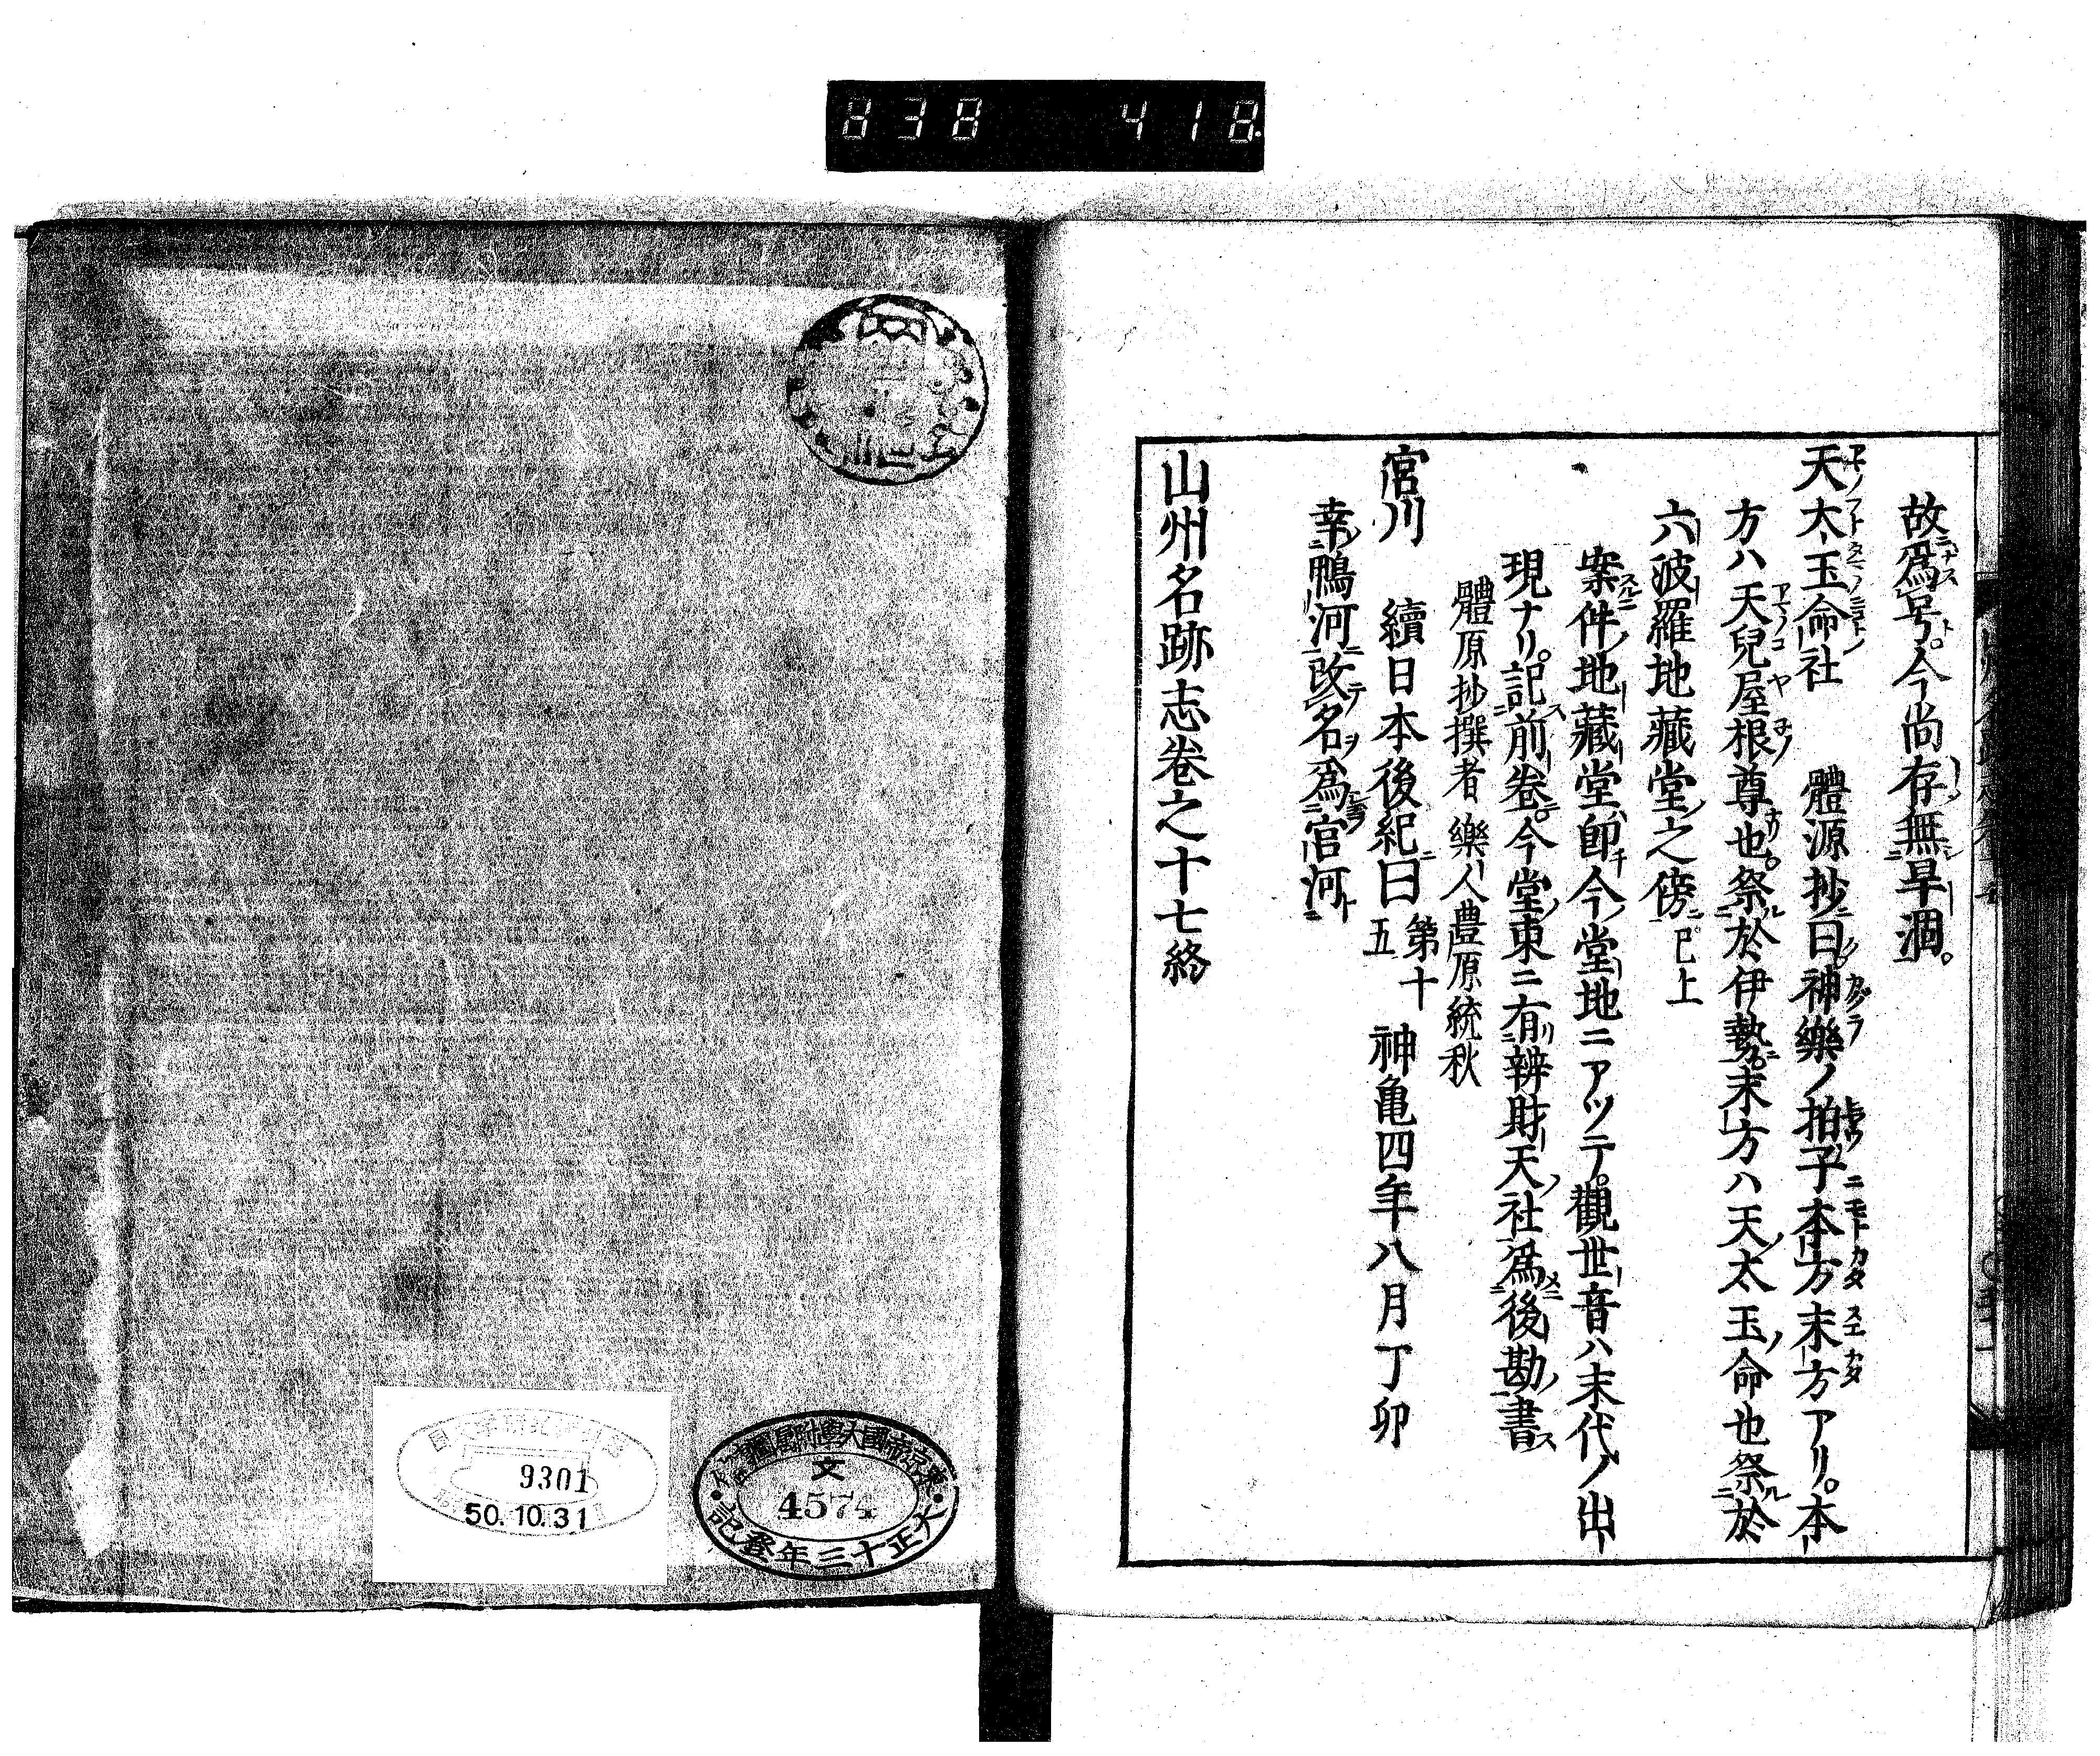 838 418
故爲号。今尚存無旱涸。
天太玉命社 體源抄曰神樂ノ拍子本方末方アリ。本
方ハ天兒屋根尊也。祭於伊勢。末方ハ天太玉命也祭於
六波羅地藏堂之傍 已上
案件地藏堂卽今堂地ニアツテ。觀世音ハ末代ノ出
現ナリ。記前卷。今堂東ニ有辨財天社爲後勘書
體原抄撰者樂人豊原統秋
官川 續日本後紀曰 第十五 神亀四年八月丁卯
幸鴨河改名爲官河
山州名跡志卷之十七終
東京帝國大學附属圖書
文
4574
大正十三年登記
9301
50.10.31